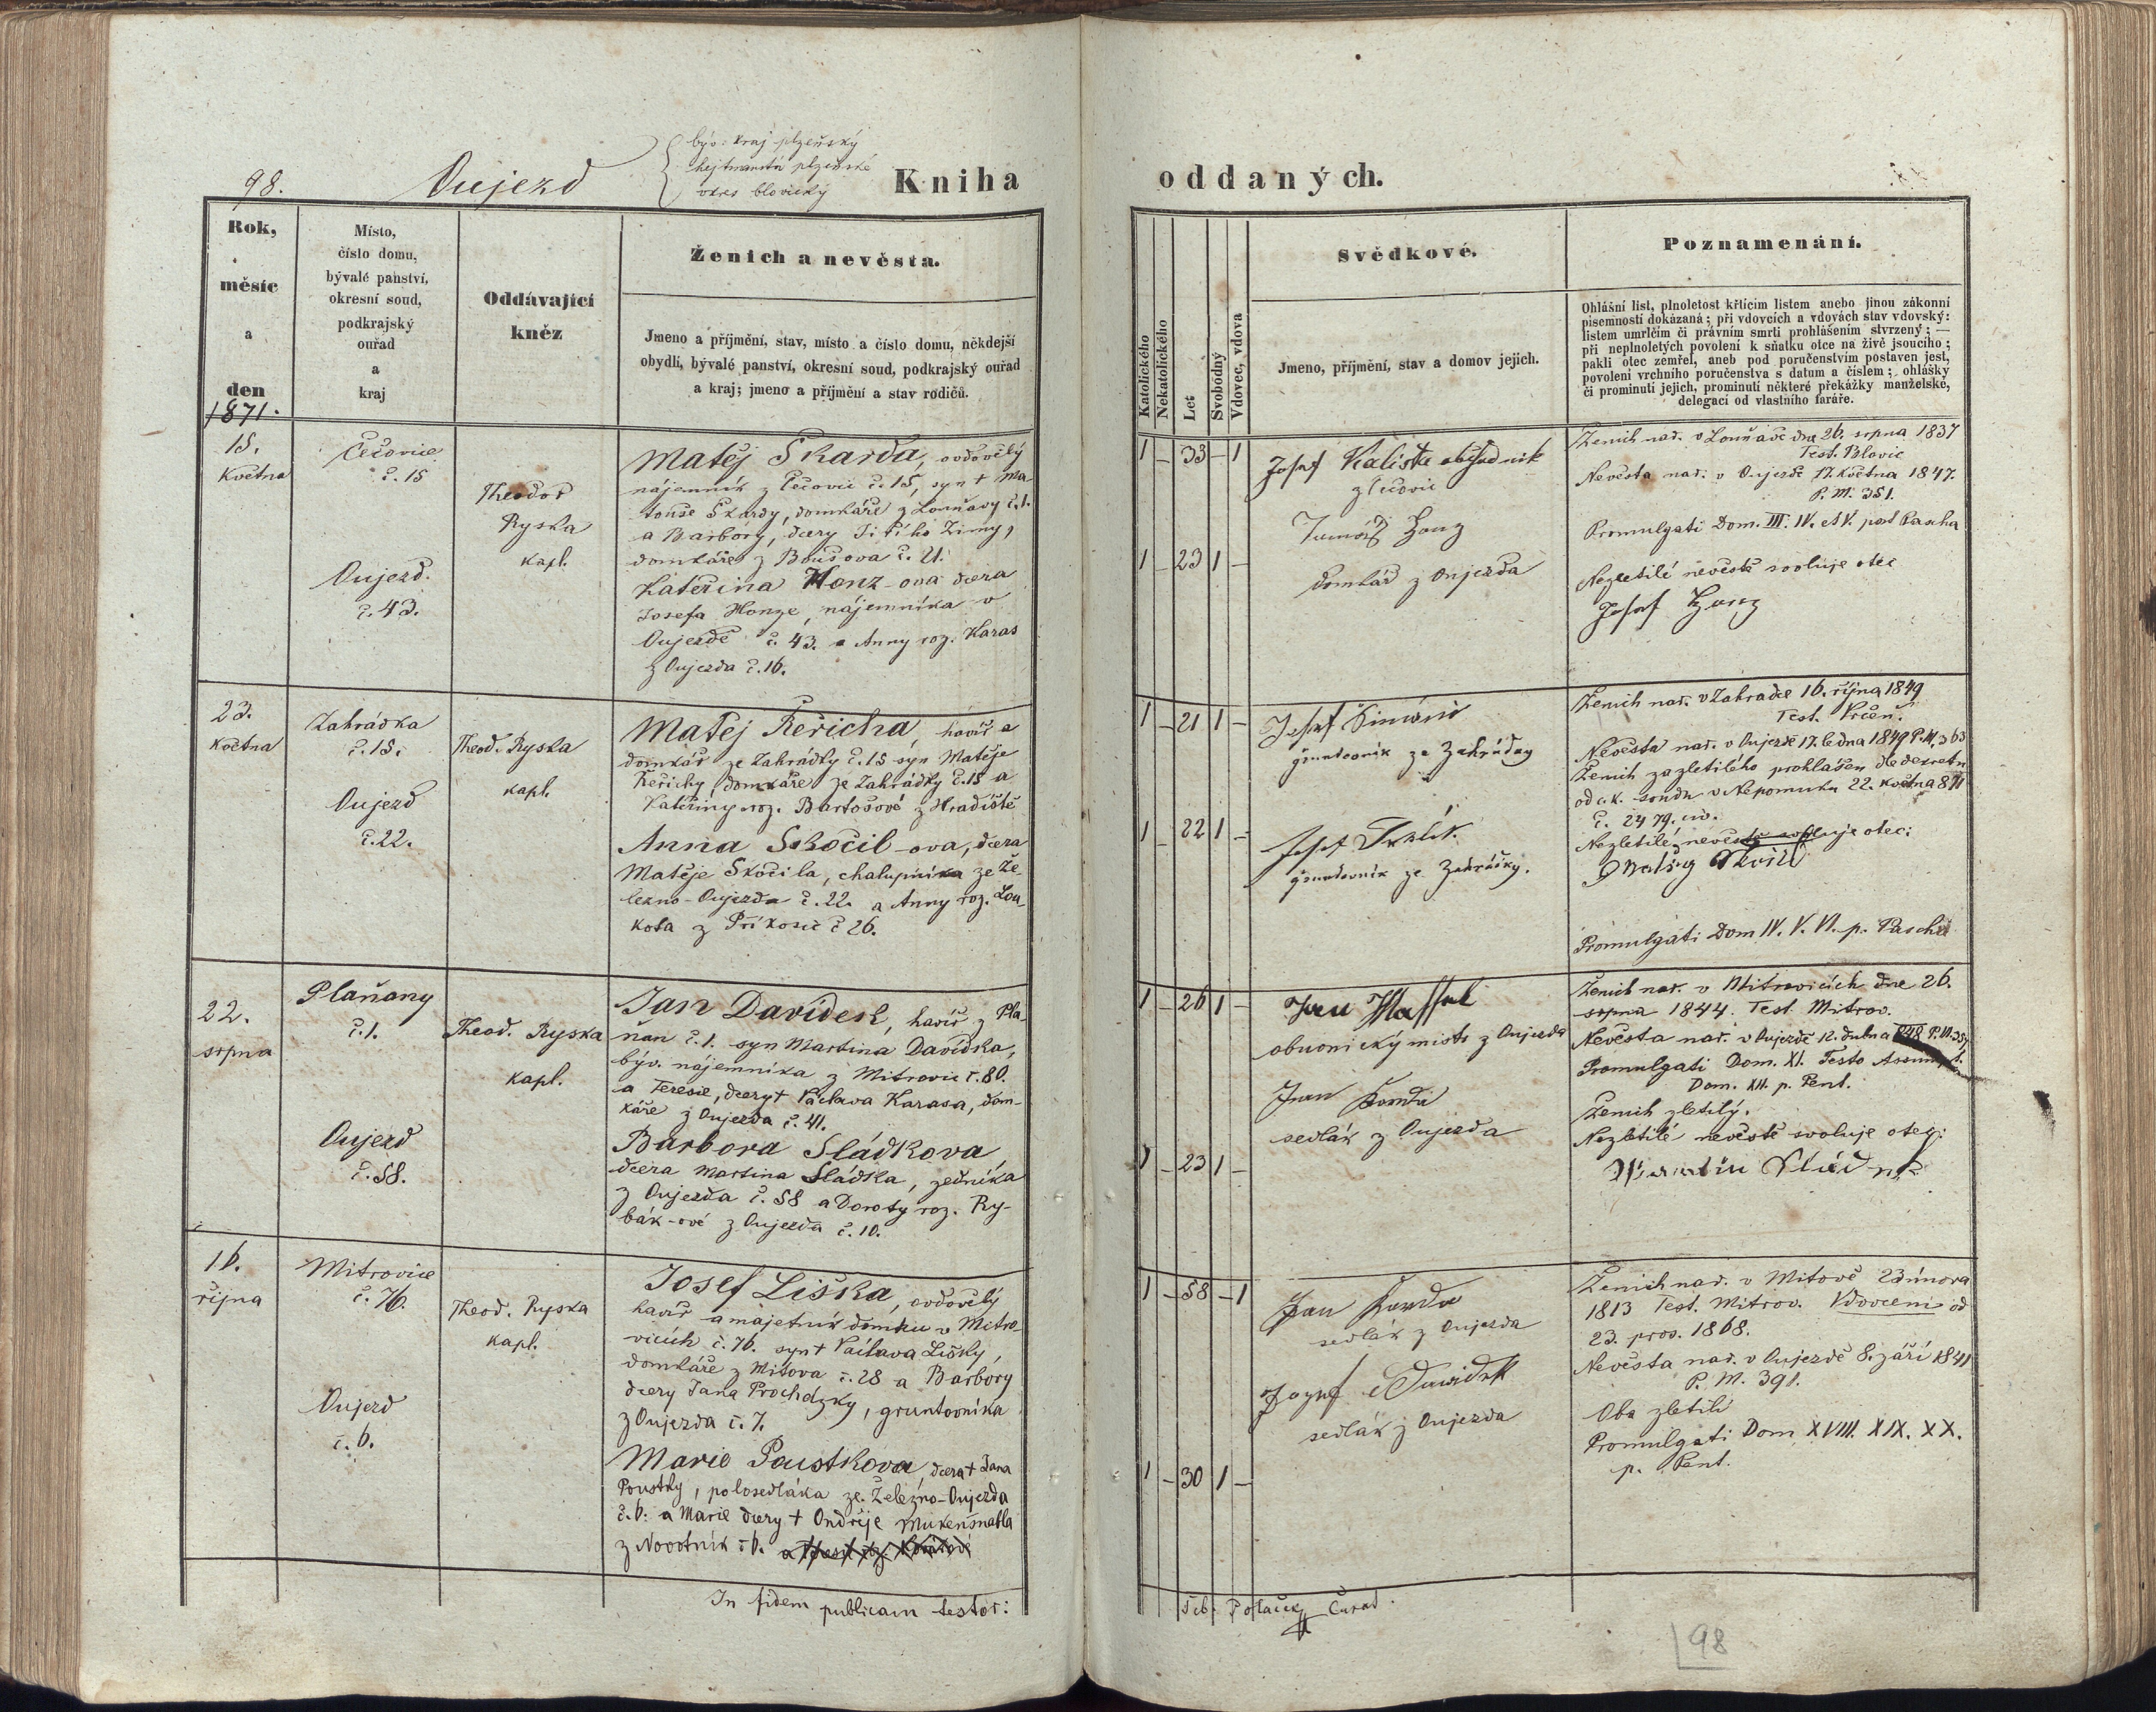 98.
Oujezd
býv. kraj plzeňský
hejtmanství plzeňské
okres blovický
Kniha
Rok,
měsíc
a
den
1871.
Místo,
číslo domu,
bývalé panství,
okresní soud,
podkrajský
ouřad
a
kraj
Oddávající
kněz
Ženich a nevěsta.
Jmeno a příjmění, stav, místo a číslo domu, někdejší
obydlí, bývalé panství, okresní soud, podkrajský ouřad
a kraj; jmeno a příjmění a stav rodičů.
15.
Května
Čečovice
č. 15
Oujezd.
č. 43.
Theodor
Ryska
kapl.
Matěj Skarda, ovdovělý
nájemník z Čečovic č. 15, syn + Ma-
touše Skardy, domkáře z Louňavy č. 1.
a Barbory, dcery Jiřího Zimy,
domkáře z č. 21.
Kateřina Honz-ova dcera
Josefa Honze, nájemníka v
Oujezdě č. 43. a Anny roz. Karas
z Oujezda č. 16.
23.
Května
Zahrádka
č. 15.
Oujezd
č. 22.
Theod. Ryska
kapl.
Matěj Řeřicha, havíř a
domkář ze Zahrádky č. 15 syn Matěje
Řeřichy, domkáře ze Zahrádky č. 15 a
Kateřiny roz. Bartošové z Hradiště
Anna Skočil-ova, dcera
Matěje Skočila, chalupníka ze Že-
lezno-Oujezda č. 22. a Anny roz. Lou-
kota z Příkosic č 26.
22.
srpna
Plaňany
č. 1.
Oujezd
č. 58.
Theod. Ryska
kapl.
Jan Davídek, havíř z Pla-
ňan č. 1. syn Martina Davídka,
býv. nájemníka z Mitrovic č. 80.
a Teresie, dcery + Václava Karasa, dom-
káře z Oujezda č. 41.
Barbora Sládkova
dcera Martina Sládka, zedníka
z Oujezda č. 58 a Doroty roz. Ry-
bák-ové z Oujezda č. 10.
16.
října
Mitrovice
č. 76.
Oujezd
č. 6.
Theod. Ryska
kapl.
Josef Liška, ovdovělý
havíř a majetník domku v Mitro-
vicích č. 76. syn + Václava Lišky,
domkáře z Mítova č. 28 a Barbory
dcery Jana Prochazky, gruntovníka
z Oujezda č. 7.
Marie Poustkova, dcera + Jana
Poustky, polosedláka ze Železno-Oujezda
č. 6. a Marie dcery + Ondřeje Mukenšnabla
z Novotník č 6.
In fidem publicam testor:
oddaných.
Katolického
Nekatolického
Let
Svobodný
Vdovec, vdova
Svědkové.
Jmeno, příjmění, stav a domov jejich.
Poznamenání.
Ohlášní list, plnoletost křtícím listem anebo jinou zákonní
písemností dokázaná; při vdovcích a vdovách stav vdovský:
listem umrlčím či právním smrti prohlášením stvrzený; —
při neplnoletých povolení k sňatku otce na živě jsoucího;
pakli otec zemřel, aneb pod poručenstvím postaven jest,
povolení vrchního poručenstva s datum a číslem; ohlášky
či prominutí jejich, prominutí některé překážky manželské,
delegací od vlastního faráře.
1 – 33 – 1
1 – 23 1 –
Josef Kalista
z Čečovic
Honz
domkář z Oujezda
Ženich nar. v Louňavě dne 26. srpna 1837
Test. Blovic
Nevěsta nar. v Oujezdě 17. Května 1847.
P. M. 351.
Promulgati Dom. III. IV. et V. post Pascha
Nezletilé nevěstě svoluje otec
Josef Honz
1 – 21 1 –
1 – 22 1 –
Josef Šimáně
gruntovník ze Zahrádky
Josef
gruntovník ze Zahrádky.
Ženich nar. v Zahrádce 16. října 1849
Test. Prčeň.
Nevěsta nar. v Oujezdě 17. ledna 1849 P. M. 363
Ženich za zletilého prohlášen dle dekretu
od c. k. soudu v Nepomuku 22. května 871
č. 2479. civ.
Nezletilé nevěstě svoluje otec:
Matěj Skočil
Promulgati Dom IV. V. VI. p. Pascha
1 – 26 1 –
1 – 23 1 –
Jan
obuvnický mistr z Oujezda
Jan Korda
sedlák z Oujezda
Ženich nar. v Mitrovicích dne 26.
srpna 1844. Test. Mitrov.
Nevěsta nar. v Oujezdě 12. dubna 848 P. M. 357
Promulgati Dom. XI. Festo Assumpt.
Dom. XII. p. Pent.
Ženich zletilý.
Nezletilé nevěstě svoluje otec:
Martin Sládek
1 – 58 – 1
1 – 30 1 –
Jan Korda
sedlák z Oujezda
Jozef Davidek
sedlák z Oujezda
Ženich nar. v Mítově 23 února
1813 Test. Mitrov. Vdovcem od
23. pros. 1868.
Nevěsta nar. v Oujezdě 8. září 1841
P. M. 391.
Oba zletilí
Promulgati Dom XVIII. XIX. XX.
p. Pent.
Šeb. Polaček Curat.
98